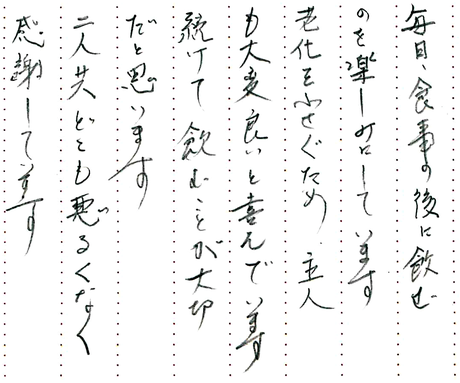 毎日、食事の後に飲む
のを楽しみにして います
老化をふせぐため 主人
も大変良いと喜んで います
続けて 飲むことが大切
だと思います
二人共どこも悪るくなく
感謝しています